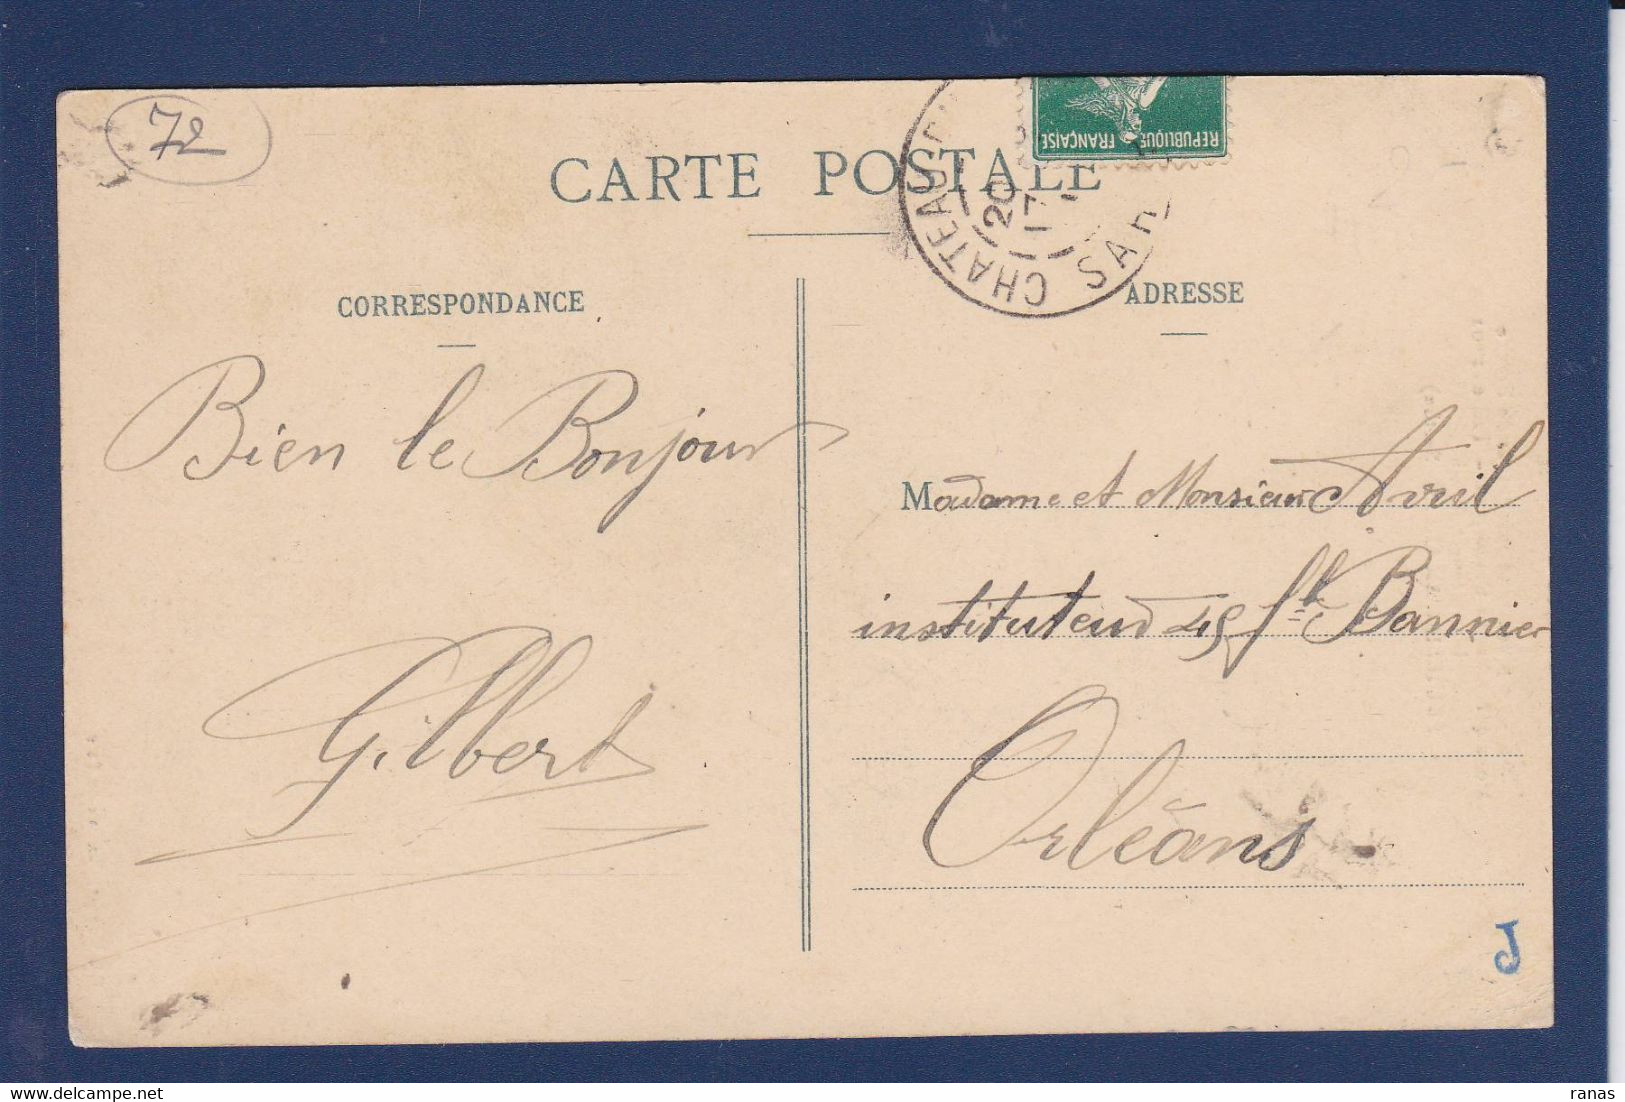 72
CARTE POSTALE
REPUBLIQUE FRANÇAISE
CHATEAU
20
17
SAR
CORRESPONDANCE
ADRESSE
Bien le Bonjour
Gilbert
Madame et Monsieur Avril
instituteur 45 fg Bannier
Orléans
J
ranas